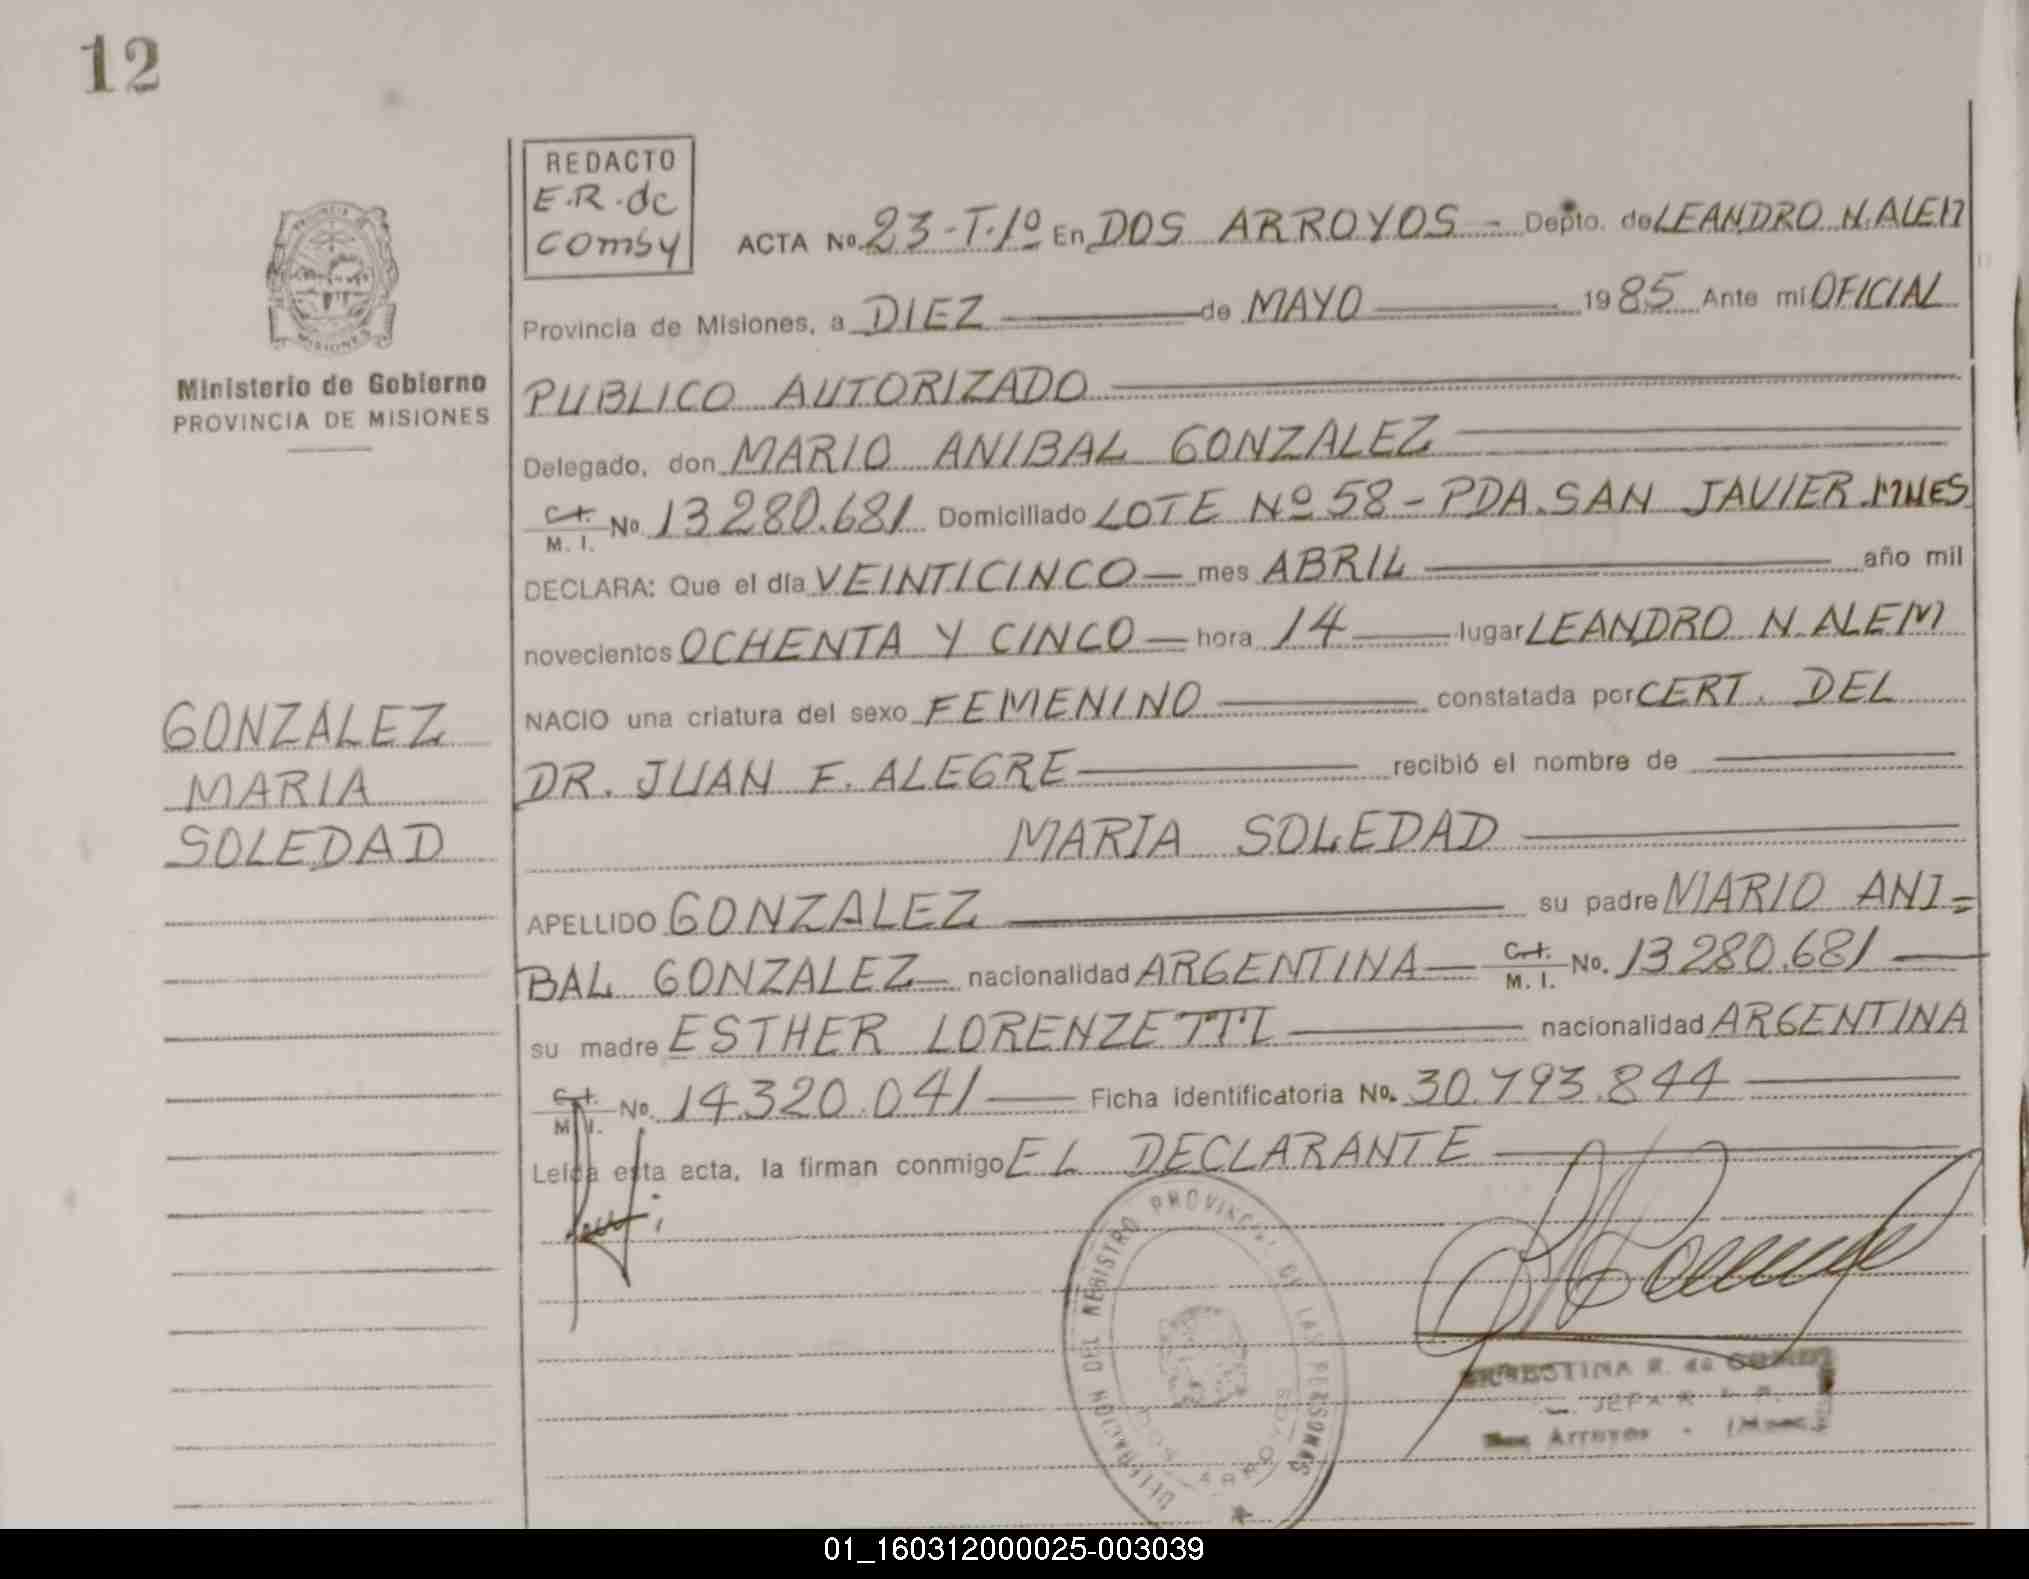 12
REDACTO
E.R. de
Comsy
ACTA No. 23-T.1º En DOS ARROYOS - Depto. de LEANDRO N. ALEM
Provincia de Misiones, a DIEZ de MAYO 1985 Ante mi OFICIAL
Ministerio de Gobierno
PROVINCIA DE MISIONES
PUBLICO AUTORIZADO
Delegado, don MARIO ANIBAL GONZALEZ
C.I. M. I. No. 13280.681 Domiciliado LOTE Nº 58 - PDA. SAN JAVIER. MNES
DECLARA: Que el día VEINTICINCO mes ABRIL año mil
novecientos OCHENTA Y CINCO hora 14 lugar LEANDRO N. ALEM
NACIO una criatura del sexo FEMENINO constatada por CERT. DEL
DR. JUAN F. ALEGRE recibió el nombre de
MARIA SOLEDAD
GONZALEZ
MARIA
SOLEDAD
APELLIDO GONZALEZ su padre MARIO ANI=
BAL GONZALEZ nacionalidad ARGENTINA C.I. M. I. No. 13280.681
su madre ESTHER LORENZETTI nacionalidad ARGENTINA
C.I. M. I. No. 14.320.041 Ficha identificatoria No. 30.793.844
Leída esta acta, la firman conmigo EL DECLARANTE
DELEGACION DEL REGISTRO PROVINCIAL DE LAS PERSONAS
DOS ARROYOS
R. de
JEFA
Arroyos -
01_160312000025-003039